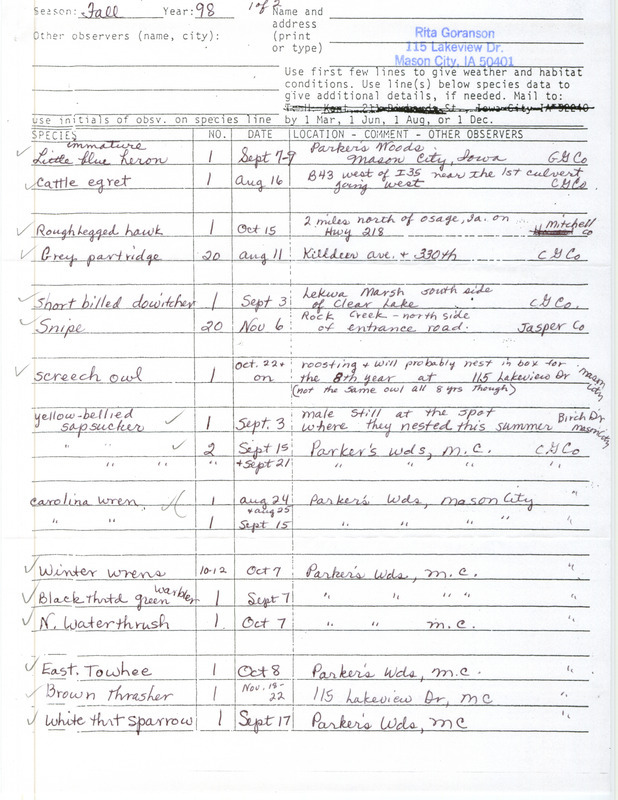 Season: Fall Year: 98 1 of 2 Name and
address
Other observers (name, city): (print
or type)
Rita Goranson
115 Lakeview Dr.
Mason City, IA 50401
Use first few lines to give weather and habitat
conditions. Use line(s) below species data to
give additional details, if needed. Mail to:
T.H. Kent, 211 Richards St., Iowa City IA 52240
use initials of obsv. on species line by 1 Mar, 1 Jun, 1 Aug, or 1 Dec.
SPECIES NO. DATE LOCATION - COMMENT - OTHER OBSERVERS
immature Parker's Woods
Little blue heron 1 Sept 7-9 Mason City, Iowa CG Co
Cattle egret 1 Aug 16 B43 west of I35 near the 1st culvert
going west CG Co
2 miles north of Osage, Ia. on Mitchell
Roughlegged hawk 1 Oct 15 Hwy 218 Co
Grey partridge 20 Aug 11 Killdeer ave. + 330th CG Co
Lekwa Marsh south side
Short billed dowitcher 1 Sept 3 of Clear Lake CG Co.
Rock Creek - north side
Snipe 20 Nov 6 of entrance road. Jasper Co
Oct. 22+ roosting + will probably nest in box for
Screech owl 1 on the 8th year at 115 Lakeview Dr mason city
(not the same owl all 8 yrs though)
yellow-bellied male still at the spot Birch Dr
sapsucker 1 Sept. 3 where they nested this summer mason city
" " 2 Sept 15 Parker's wds, M.C. CG Co
" " " + Sept 21 " " " "
Carolina wren 1 aug 24 Parker's Wds, Mason City "
+ aug 25
" " 1 Sept 15 " " " " "
Winter wrens 10-12 Oct 7 Parker's Wds, m.c. "
Black thrtd green warbler 1 Sept 7 " " " " "
N. Waterthrush 1 Oct 7 " " m.c. "
East. Towhee 1 Oct 8 Parker's Wds, m.c. "
Brown Thrasher 1 Nov. 18-22 115 Lakeview Dr, MC "
White thrt Sparrow 1 Sept 17 Parker's Wds, MC "